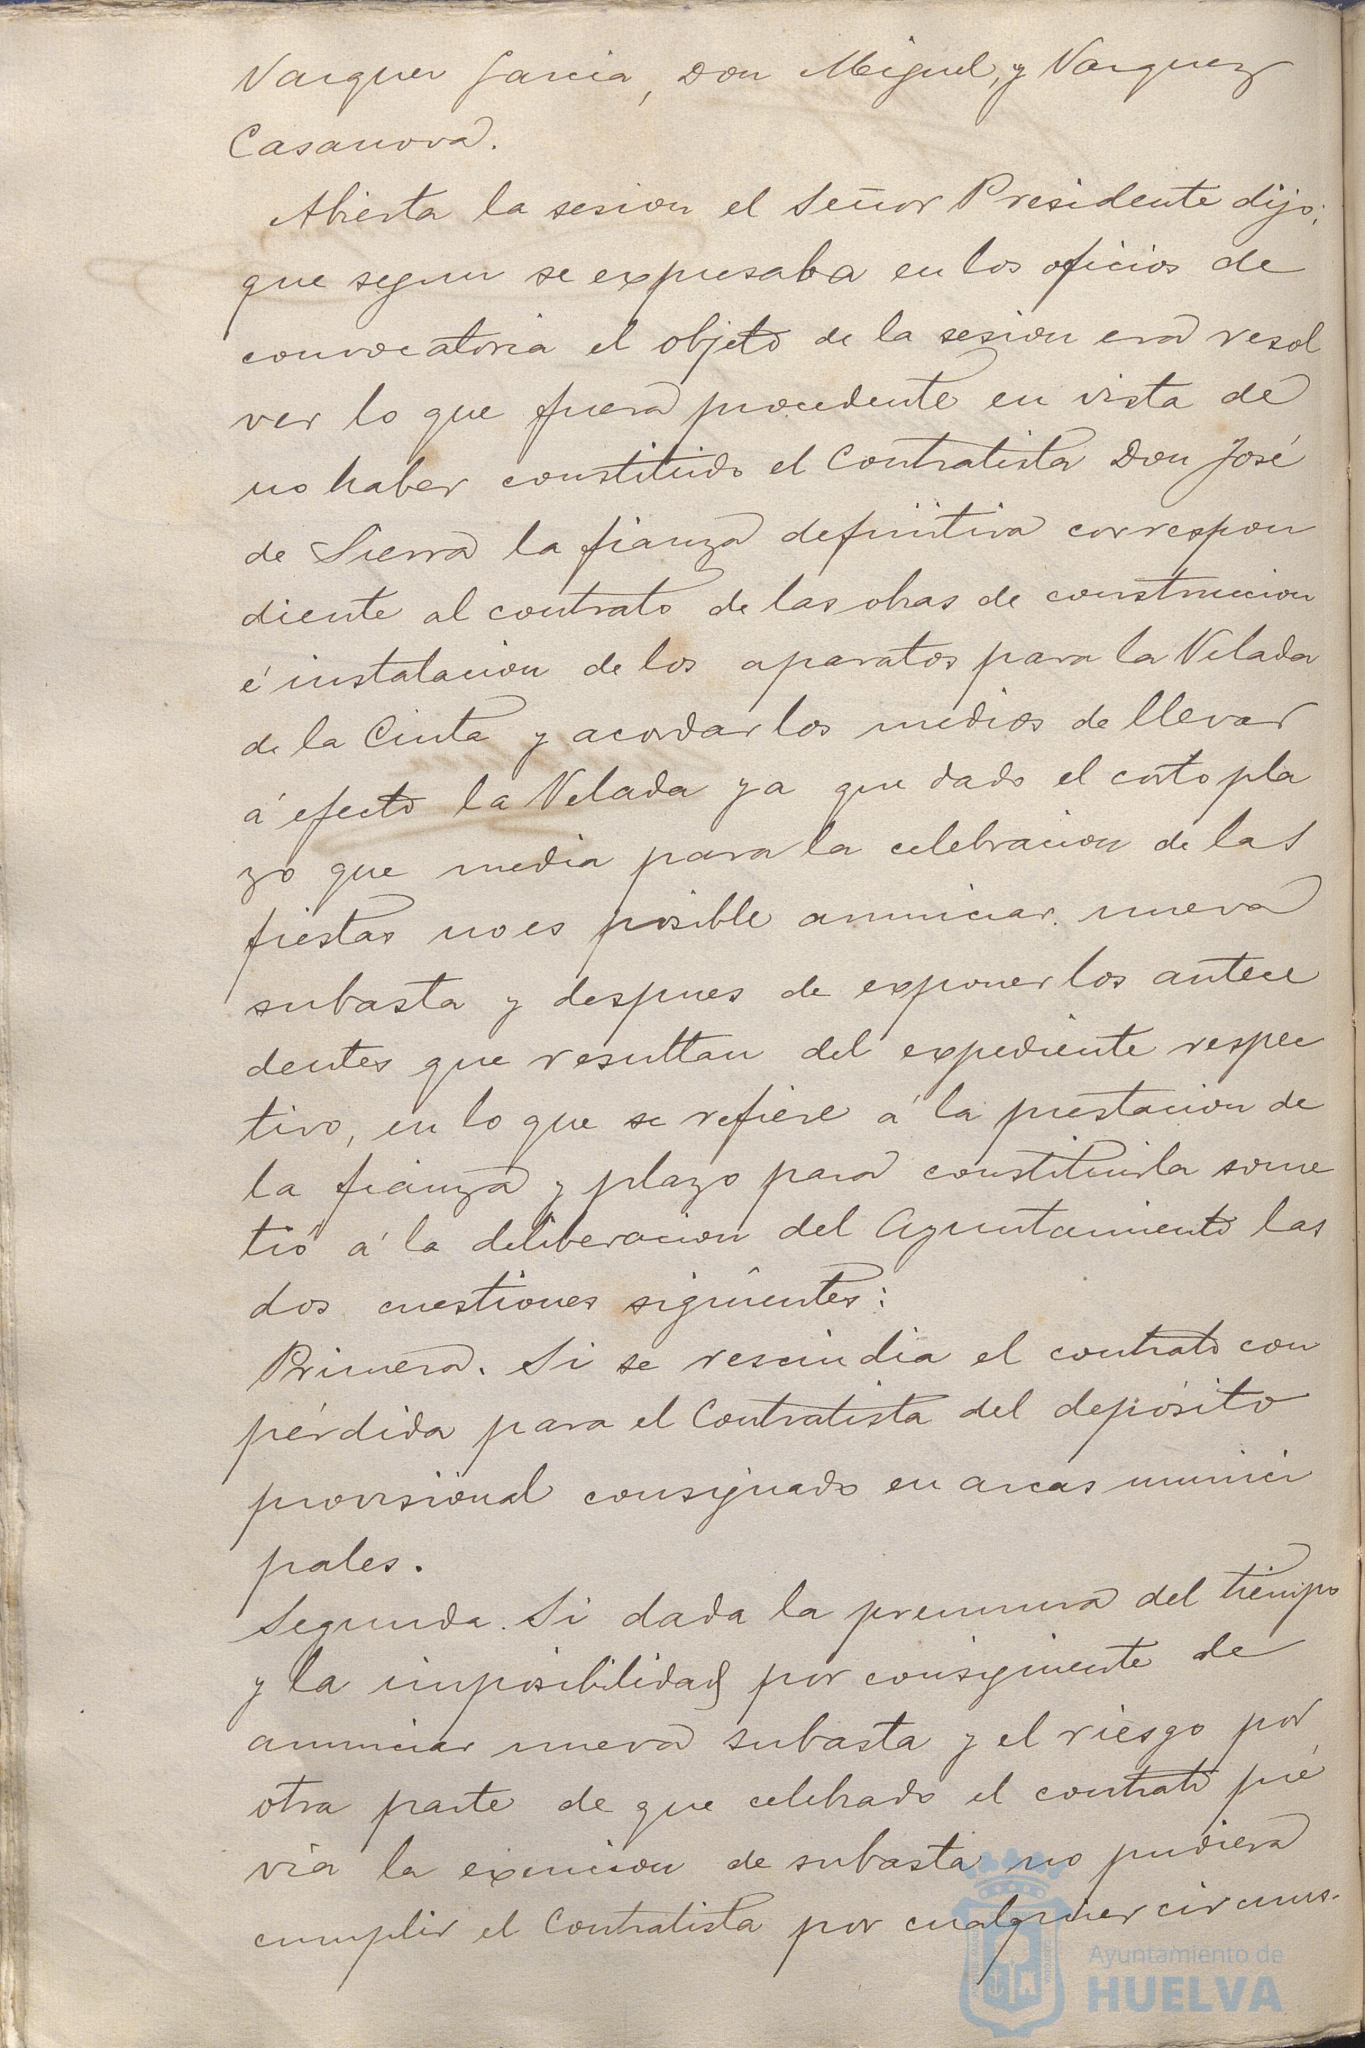 Vazquez Garcia, Don Miguel, y Vazquez
Casanova.
Abierta la sesion el Señor Presidente dijo;
que segun se expresaba en los oficios de
convocatoria el objeto de la sesion era resol
ver lo que fuera procedente en vista de
no haber constituido el Contratista Don José
de Sierra la fianza definitiva correspon
diente al contrato de las obras de construccion
é instalacion de los aparatos para la Velada
de la Cinta y acordar los medios de llevar
á efecto la Velada ya que dado el corto pla
zo que media para la celebracion de las
fiestas no es posible anunciar nueva
subasta y despues de exponer los antece
dentes que resultan del expediente respec
tivo, en lo que se refiere á la prestacion de
la fianza y plazo para constituirla some
tió á la deliberacion del Ayuntamiento las
dos cuestiones siguientes:
Primera. Si se rescindia el contrato con
pérdida para el Contratista del depósito
provisional consignado en arcas munici
pales.
Segunda. Si dada la premura del tiempo
y la imposibilidad por consiguiente de
anunciar nueva subasta y el riesgo por
otra parte de que celebrado el contrato pré
via la exencion de subasta no pudiera
cumplir el Contratista por cualquier circuns-
Ayuntamiento de
HUELVA